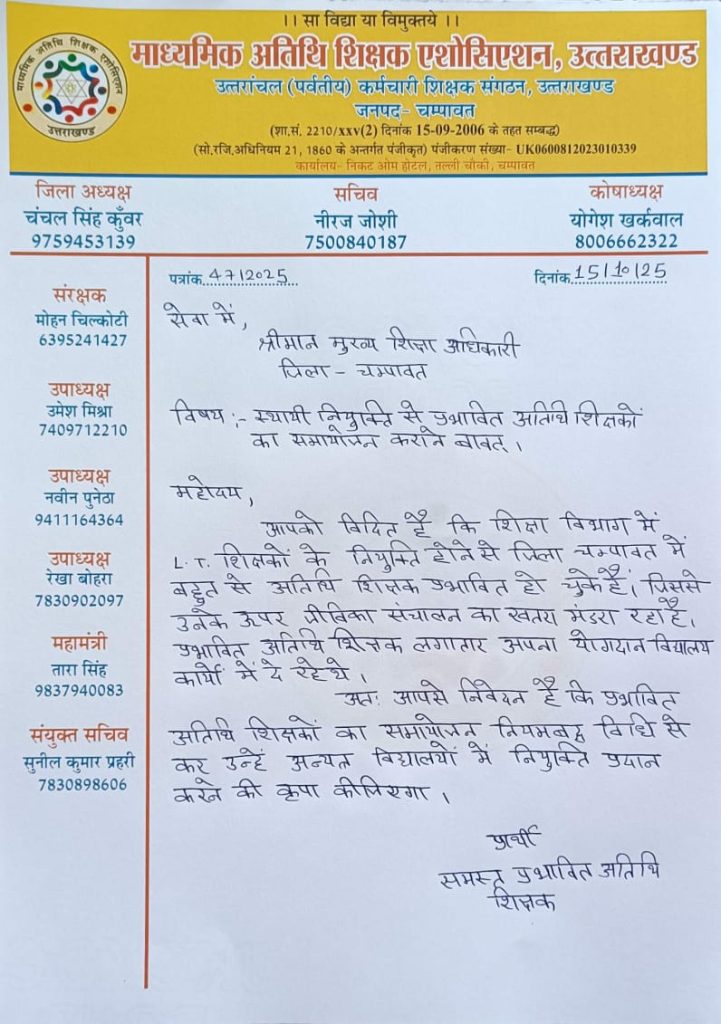 ।। सा विद्या या विमुक्तये ।।
माध्यमिक अतिथि शिक्षक एशोसिएशन, उत्तराखण्ड
उत्तरांचल (पर्वतीय) कर्मचारी शिक्षक संगठन, उत्तराखण्ड
जनपद- चम्पावत
(शा.सं. 2210/xxv(2) दिनांक 15-09-2006 के तहत सम्बद्ध)
(सो.रजि.अधिनियम 21, 1860 के अन्तर्गत पंजीकृत) पंजीकरण संख्या- UK0600812023010339
कार्यालय- निकट ओम होटल, तल्ली चौकी, चम्पावत
माध्यमिक अतिथि शिक्षक एशोसिएशन
उत्तराखण्ड
जिला अध्यक्ष
चंचल सिंह कुँवर
9759453139
सचिव
नीरज जोशी
7500840187
कोषाध्यक्ष
योगेश खर्कवाल
8006662322
संरक्षक
मोहन चिल्कोटी
6395241427
उपाध्यक्ष
उमेश मिश्रा
7409712210
उपाध्यक्ष
नवीन पुनेठा
9411164364
उपाध्यक्ष
रेखा बोहरा
7830902097
महामंत्री
तारा सिंह
9837940083
संयुक्त सचिव
सुनील कुमार प्रहरी
7830898606
पत्रांक 47/2025 दिनांक 15/10/25
सेवा में,
श्रीमान मुख्य शिक्षा अधिकारी
जिला - चम्पावत
विषय :- स्थायी नियुक्ति से प्रभावित अतिथि शिक्षकों
का समायोजन कराने बावत् ।
महोदय,
आपको विदित है कि शिक्षा विभाग में
L.T. शिक्षकों के नियुक्ति होने से जिला चम्पावत में
बहुत से अतिथि शिक्षक प्रभावित हो चुके हैं। जिससे
उनके ऊपर जीविका संचालन का खतरा मंडरा रहा है,
प्रभावित अतिथि शिक्षक लगातार अपना योगदान विद्यालय
कार्यो में दे रहे थे ।
अतः आपसे निवेदन है कि प्रभावित
अतिथि शिक्षकों का समायोजन नियमबद्ध विधि से
कर उन्हें अन्यत्र विद्यालयों में नियुक्ति प्रदान
करने की कृपा कीजिएगा ।
प्रार्थी
समस्त प्रभावित अतिथि
शिक्षक